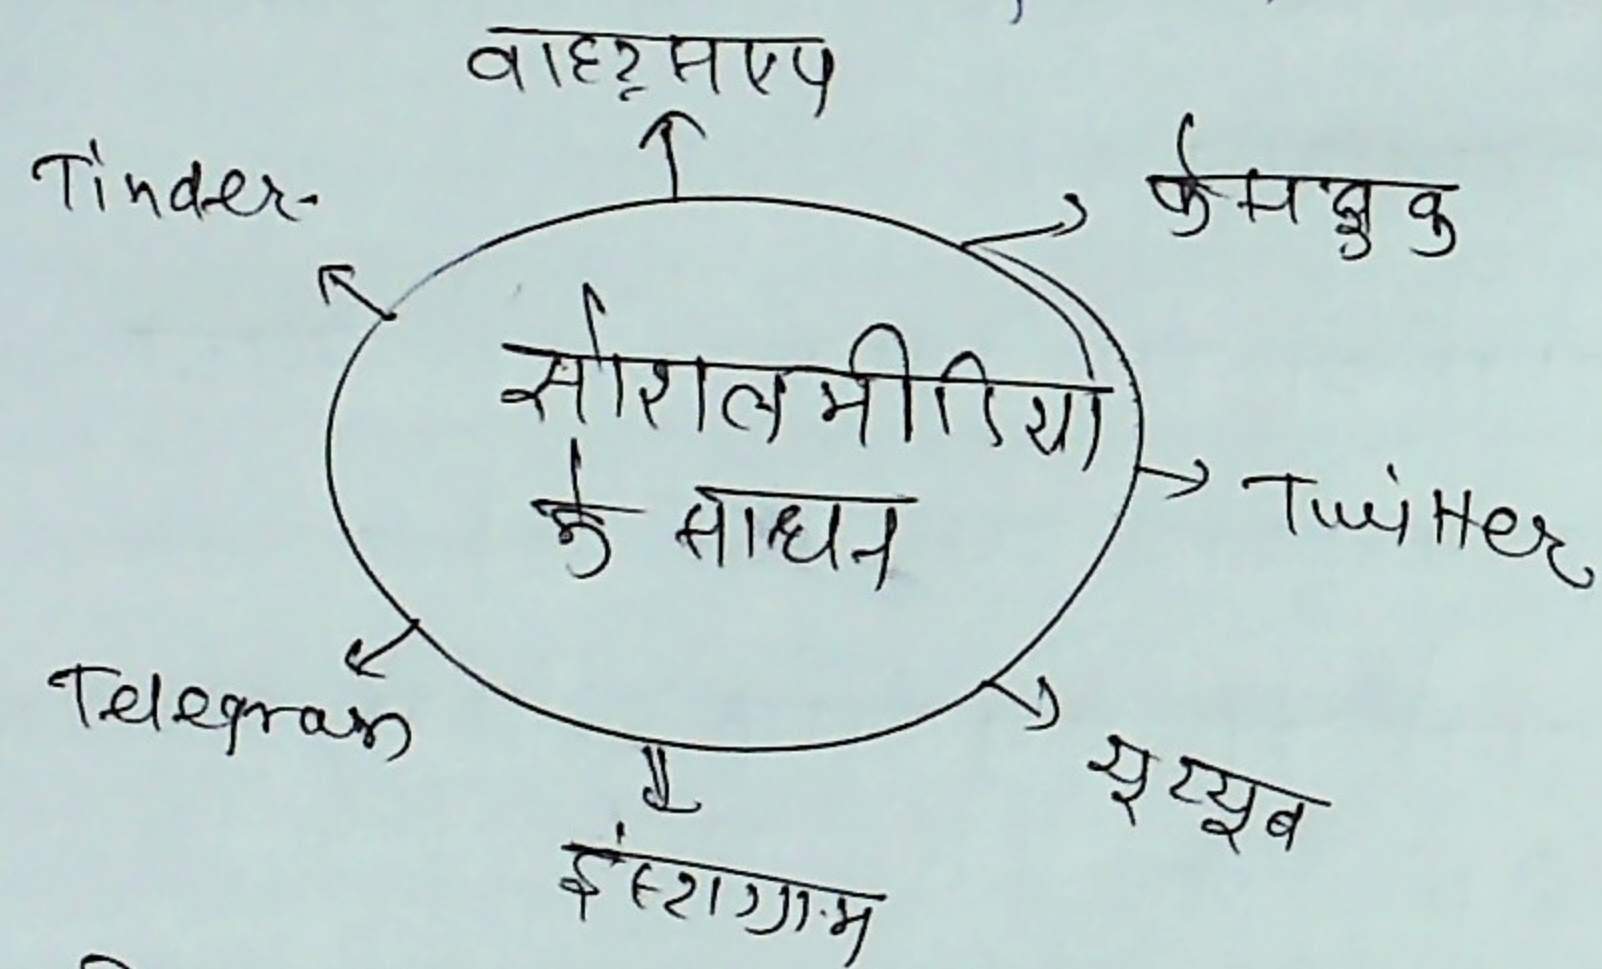 वाहट्सएप
Tinder
फेसबुक
सोशल मीडिया
के साधन
Twitter
Telegram
यूट्यूब
इंस्टाग्राम